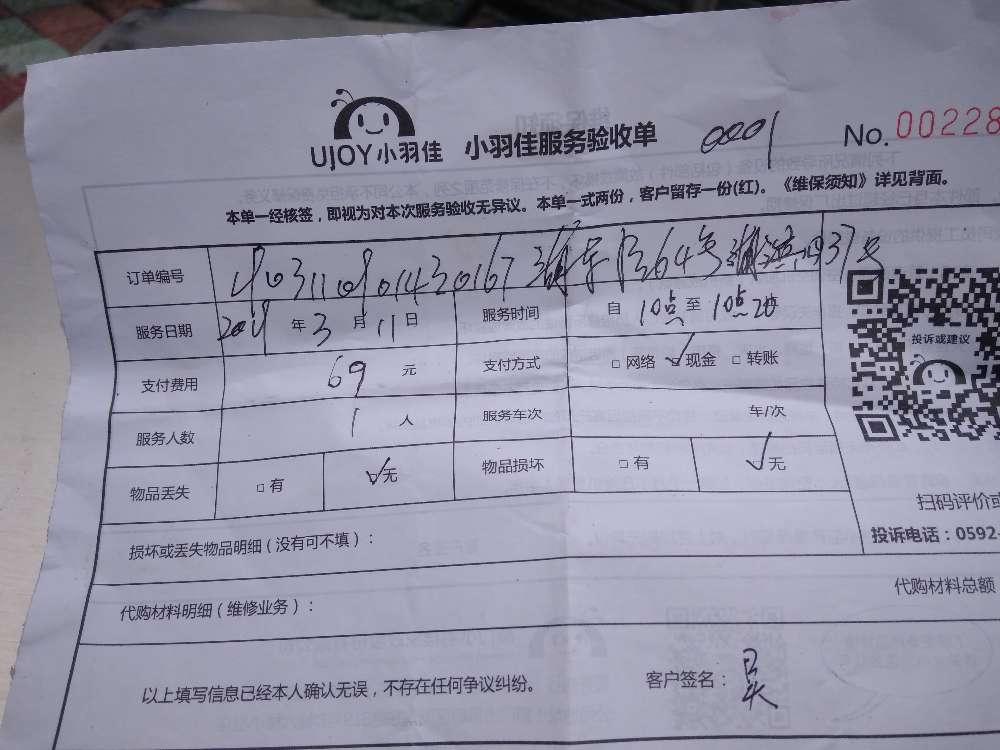 UJOY小羽佳 小羽佳服务验收单 0001 No. 00228
本单一经核签，即视为对本次服务验收无异议。本单一式两份，客户留存一份(红)。《维保须知》详见背面。
订单编号 64号 37
服务日期 年 3 月 11 日 服务时间 自 10点 至 10点20
支付费用 69 元 支付方式 □ 网络 ✓ 现金 □ 转账
投诉或建议
服务人数 1 人 服务车次 车/次
物品丢失 □ 有 ✓ 无 物品损坏 □ 有 ✓ 无
扫码评价或
损坏或丢失物品明细（没有可不填）：
投诉电话：0592-
代购材料明细（维修业务）： 代购材料总额
以上填写信息已经本人确认无误，不存在任何争议纠纷。 客户签名：